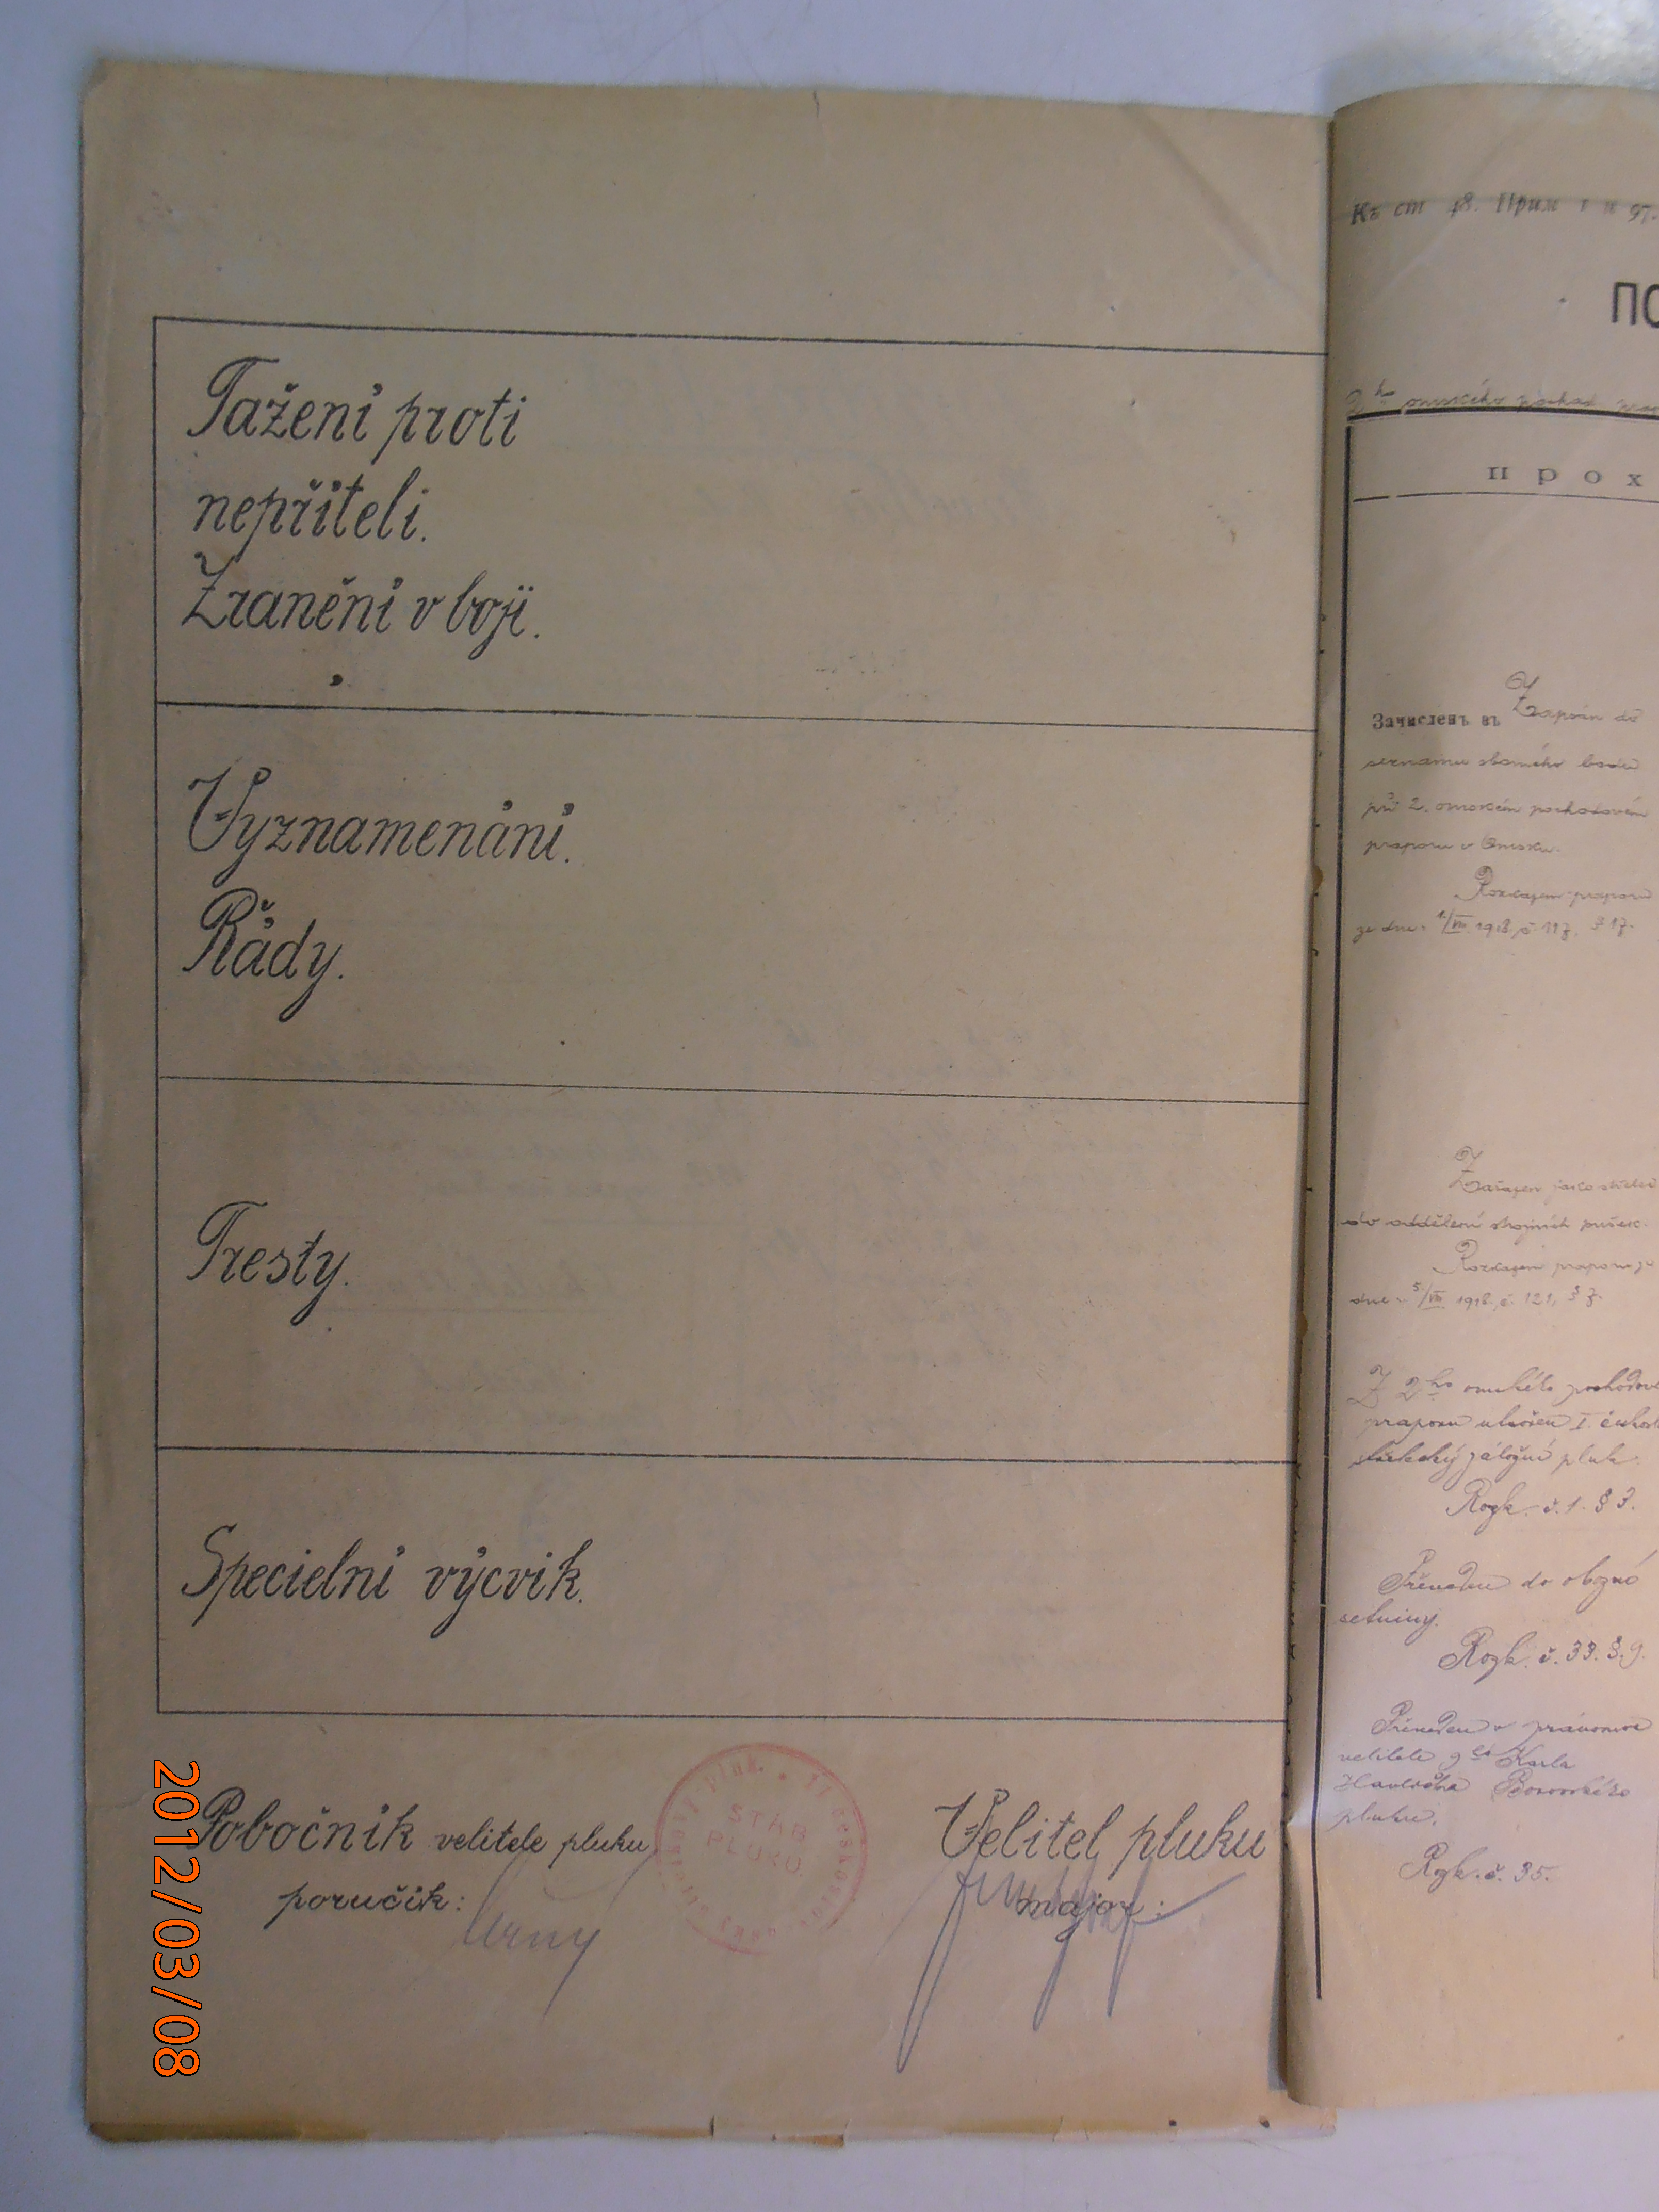 Tažení proti
nepříteli.
Zranění v boji.
Vyznamenání.
Řády.
Tresty.
Specielní výcvik.
Pobočník velitele pluku
poručík:
STÁB
PLUKU.
Velitel pluku
major:
2012/03/08
Къ ст 48. Прим 1 и 97.
ПО
2ho omského pochod.
прох
Зачисленъ въ Zapsán do
seznamu sborného bodu
při 2. omském pochodovém
praporu v Omsku.
Rozkazem praporu
ze dne 1/VII 1918 č. 117, § 17.
Zařazen jako střelec
do oddělení strojních pušek.
Rozkazem praporu ze
dne 5/VII. 1918. č. 121, § 7.
Z 2ho omského pochodové
praporu utvořen I. českosl
střelecký záložní pluk.
Rozk. č. 1. § 3.
Převeden do obozní
setniny.
Rozk. č. 33. § 9.
Převeden v pravomoc
velitele 9ho Karla
Havlíčka Borovského
pluku.
Rozk. č. 35.